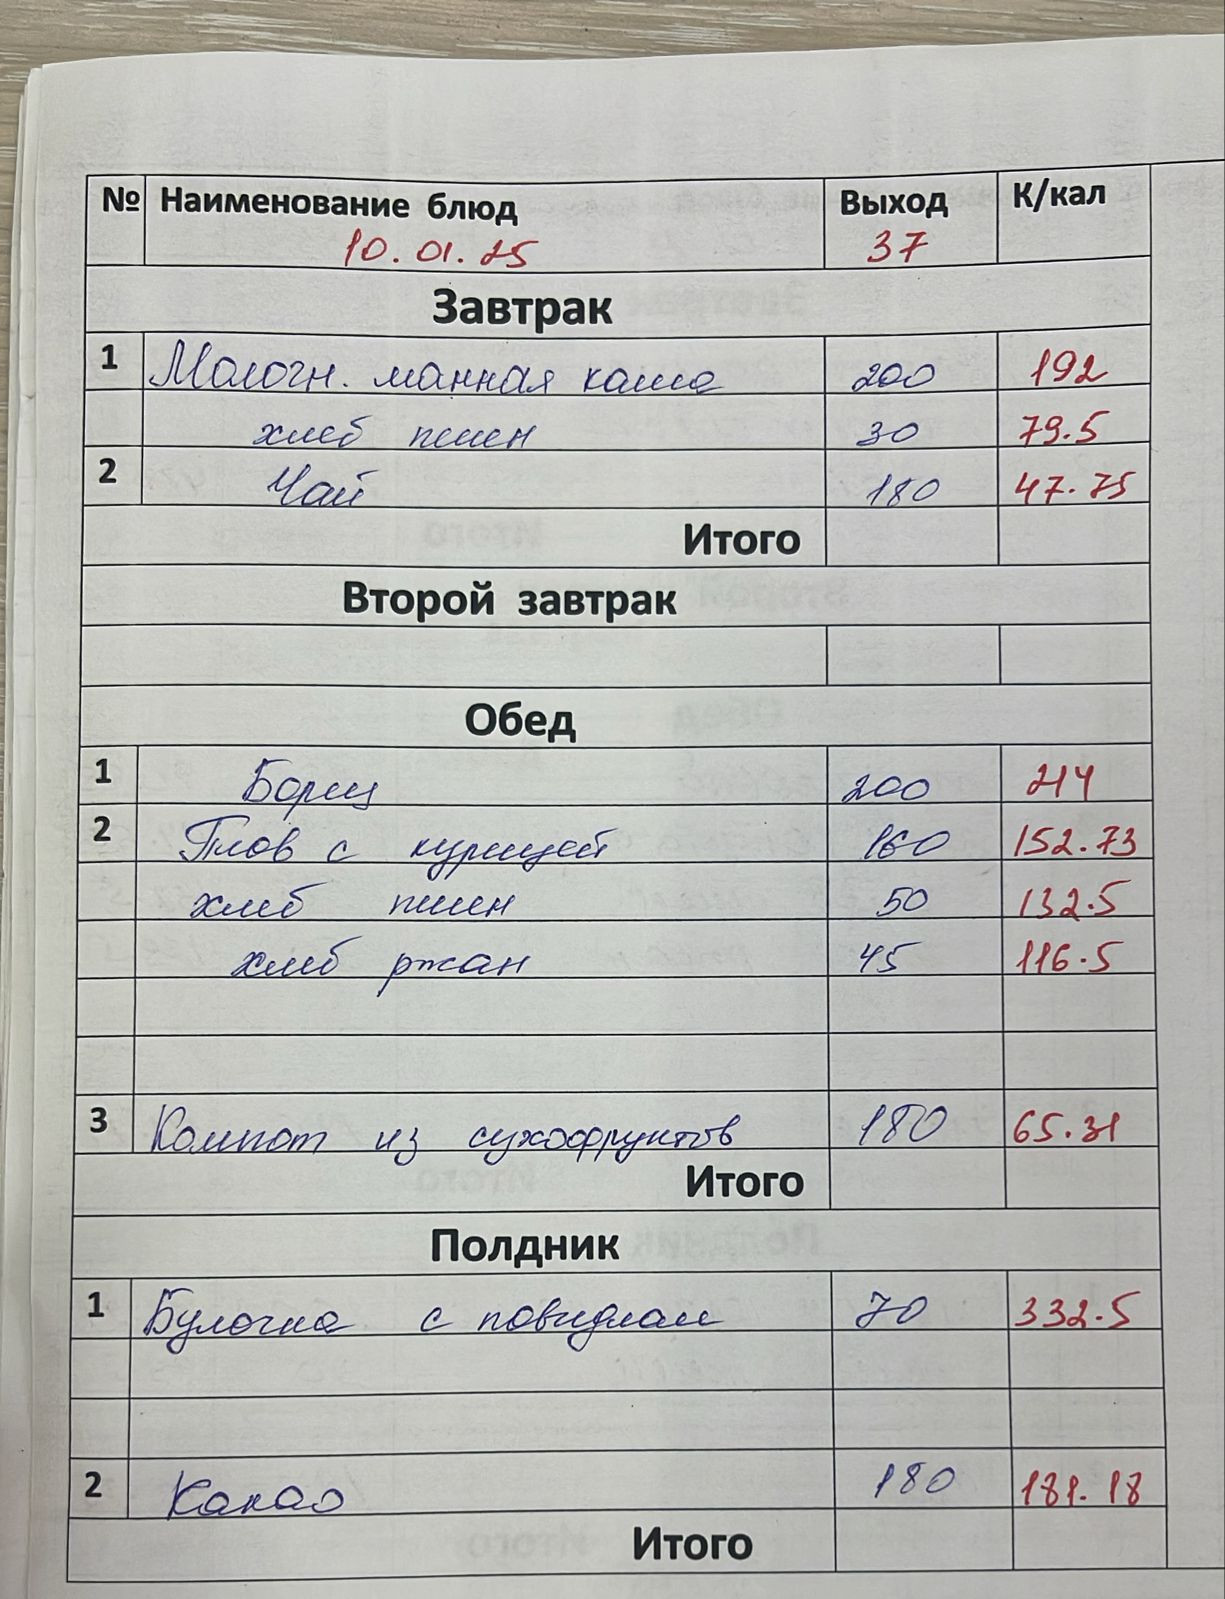 № Наименование блюд Выход К/кал
10.01.25 37
Завтрак
1 Молочн. манная каша 200 192
хлеб пшен 30 79.5
2 Чай 180 47.75
Итого
Второй завтрак
Обед
1 Борщ 200 214
2 Плов с курицей 160 152.73
хлеб пшен 50 132.5
хлеб ржан 45 116.5
3 Компот из сухофруктов 180 65.31
Итого
Полдник
1 Булочка с повидлом 70 332.5
2 Какао 180 181.18
Итого